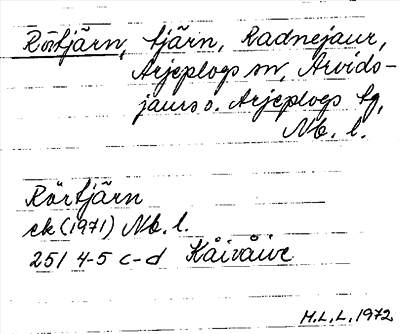 Rörtjärn, tjärn, Radnejaur,
Arjeplogs sn, Arvids-
jaurs o. Arjeplogs tg,
Nb. l.
Rörtjärn
ek (1971) Nb. l.
25I 4-5 c-d Kåivåive
H.L.L. 1972